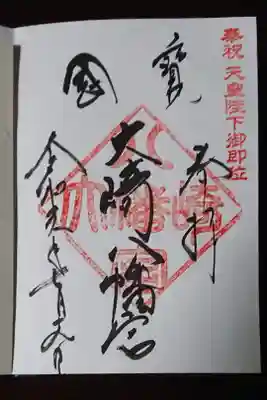 奉祝 天皇陛下御即位
國寳
奉拝
大崎八幡宮
大崎八幡宮
令和元年七月九日